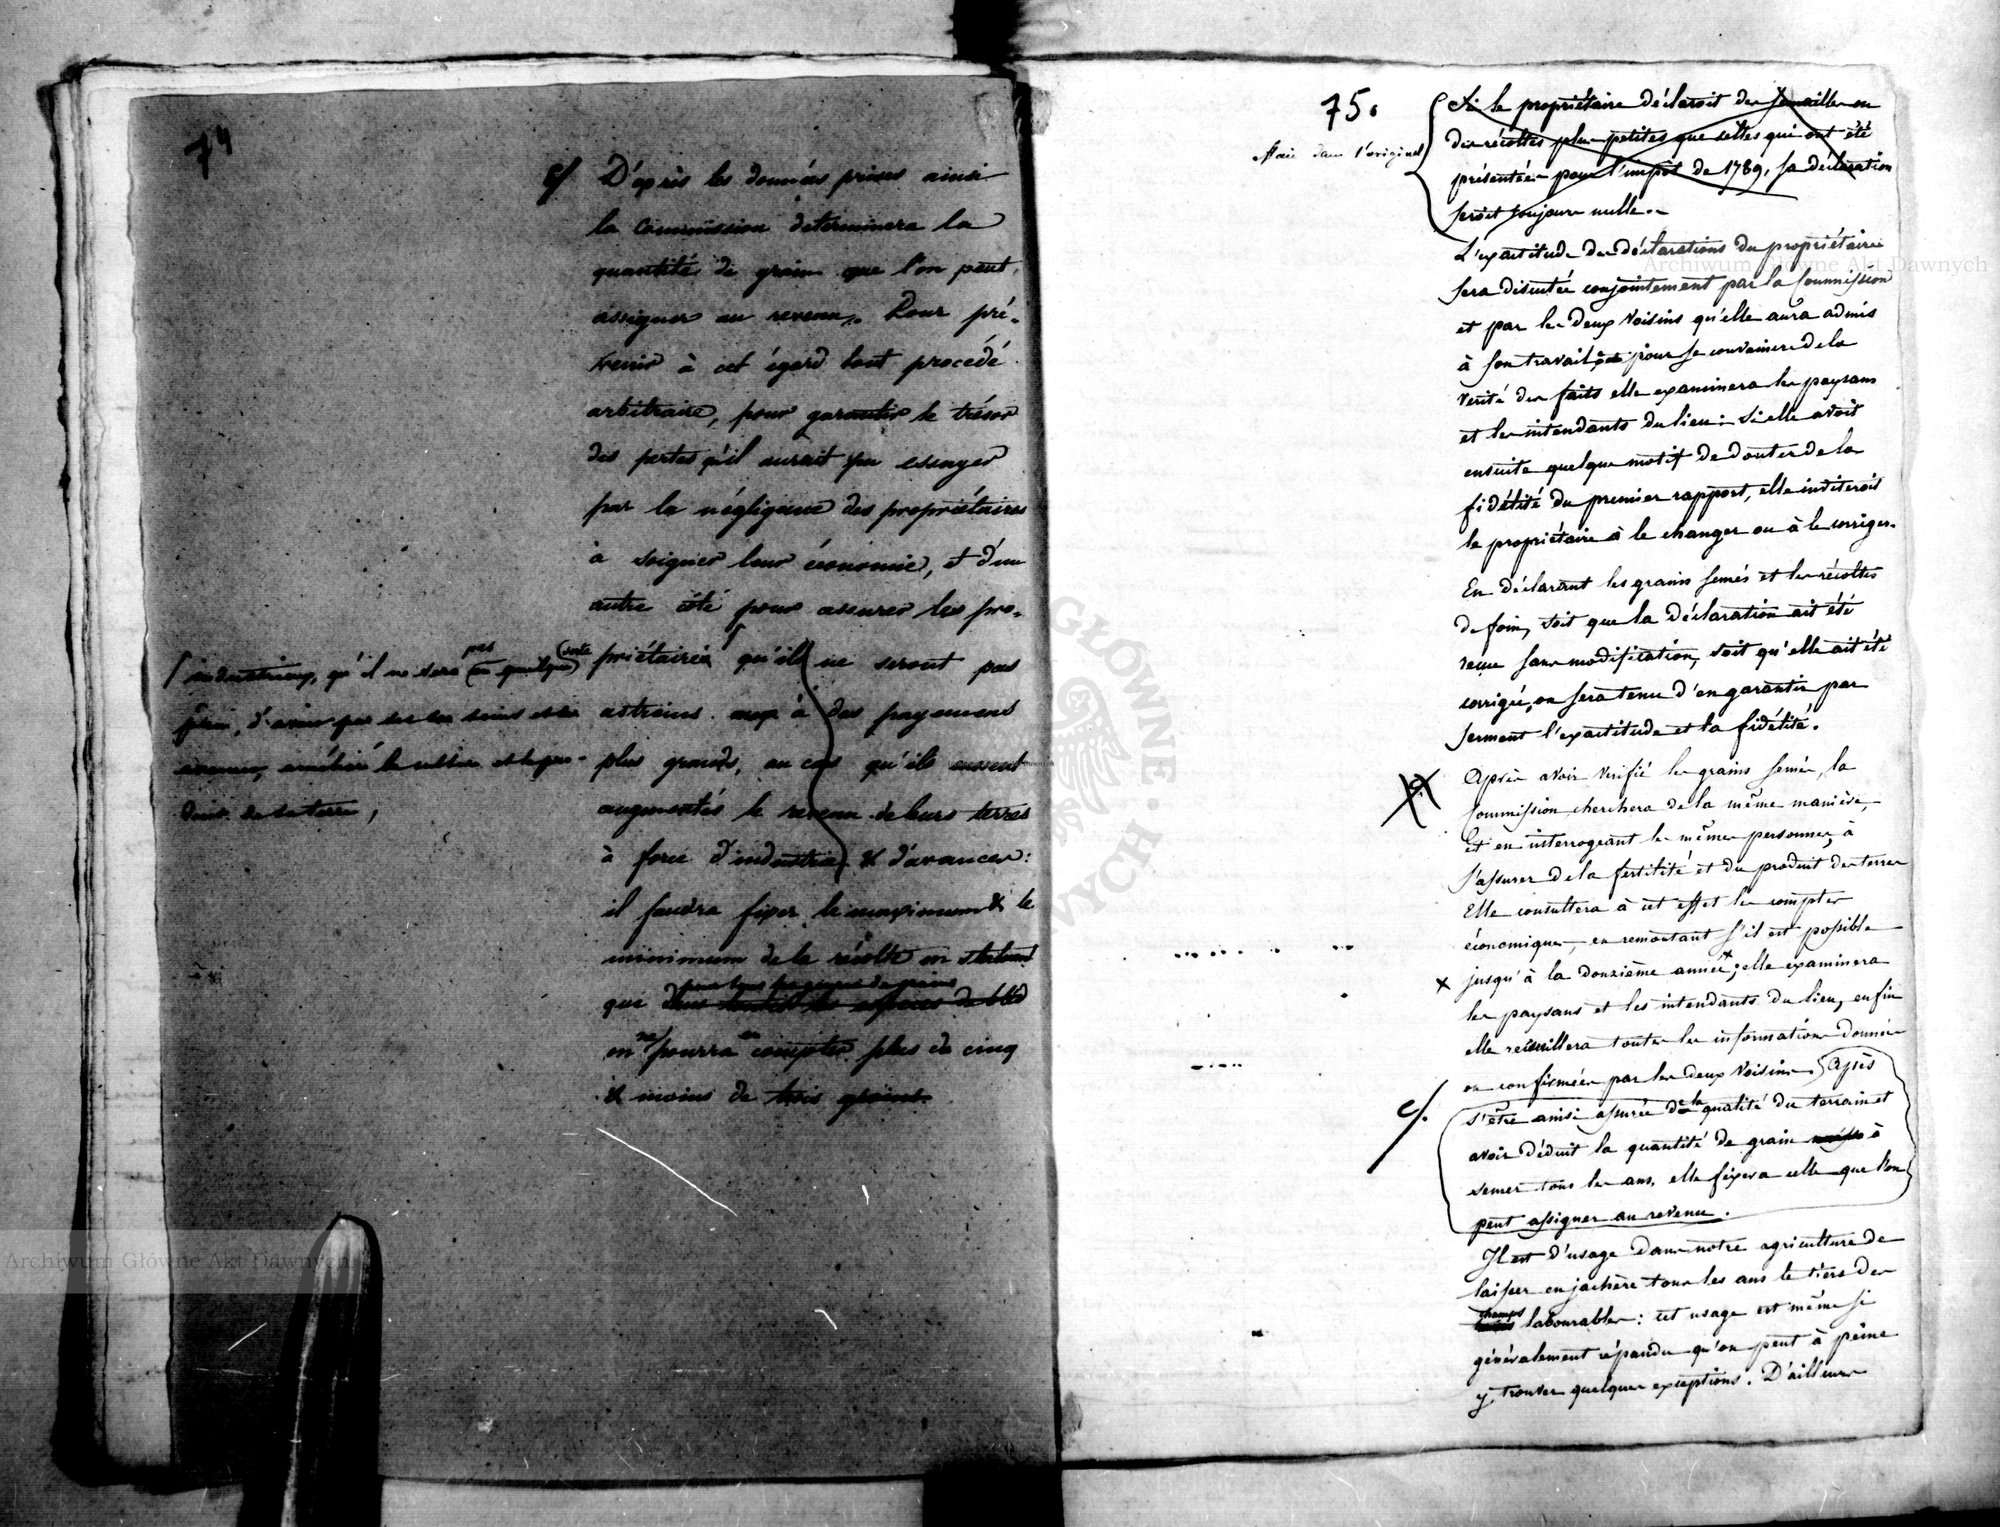 74
c/ D'après les données prises ainsi
la Commission determinera la
quantité de grain que l'on peut
assigner au revenu. Pour pré-
venir à cet égard tout procédé
arbitraire, pour garantir le trésor
des pertes qu'il aurait pu essuyer
par la négligence des propriétaires
à soigner leur économie, et d'un
autre côté pour assurer les pro-
priétaires qu'ils ne seront pas
astreins à des payemens
plus grands, au cas qu'ils eussent
augmentés le revenu de leurs terres
à force d'industrie & d'avances:
il faudra fixer le maximum & le
minimum de la récolte en statuant
pour tous les genres de grains
que dans toutes les espèces de bled
on ne pourra en compter plus de cinq
& moins de trois grains.
industrieux, qu'il ne sera pas en quelque sorte
puni, d'avoir par ses soins et ses
avances, amélioré la culture et le pro-
duit de sa terre,
75.
Raié dans l'original
Si le propriétaire déclaroit des semailles ou
des récoltes plus petites que celles qui ont été
présentées pour l'impôt de 1789, sa déclaration
seroit toujours nulle.
L'exactitude des déclarations du propriétaire
Archiwum Główne Akt Dawnych
sera discutée conjointement par la Commission
et par les deux voisins qu'elle aura admis
à son travail pour se convaincre de la
verité des faits elle examinera les paysans
et les intendants du lieu: Si elle avoit
ensuite quelque motif de douter de la
fidélité du premier rapport, elle inviteroit
le propriétaire à le changer ou à le corriger.
En déclarant les grains semés et les récoltes
de foin, soit que la déclaration ait été
reçue sans modification, soit qu'elle ait été
corrigée, on sera tenu d'en garantir par
serment l'exactitude et la fidélité.
Après avoir verifié les grains semés, la
Commission cherchera de la même manière,
et en interrogeant les mêmes personnes, à
s'assurer de la fertilité et du produit des terres
Elle consultera à cet effet les comptes
économiques, en remontant s'il est possible
x jusqu'à la douzième année; x elle examinera
les paysans et les intendants du lieu, enfin
elle recueillera toutes les informations données
ou confirmées par les deux voisins. Après
c/. s'être ainsi assurée de la qualité du terrain et
avoir déduit la quantité de grain à
semer tous les ans, elle fixera celle que l'on
peut assigner au revenu.
Il est d'usage dans notre agriculture de
laisser en jachère tous les ans le tiers des
champs labourables: cet usage est même si
généralement répandu qu'on peut à peine
y trouver quelques exceptions. D'ailleurs
Archiwum Główne Akt Dawnych
GŁÓWNE
YCH